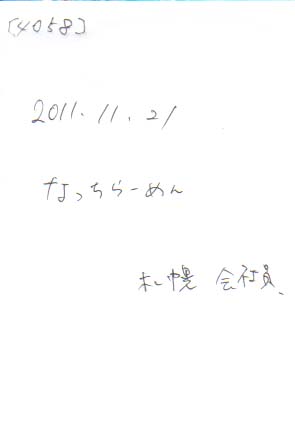 [4058]
2011.11.21
なっちらーめん
札幌 会社員